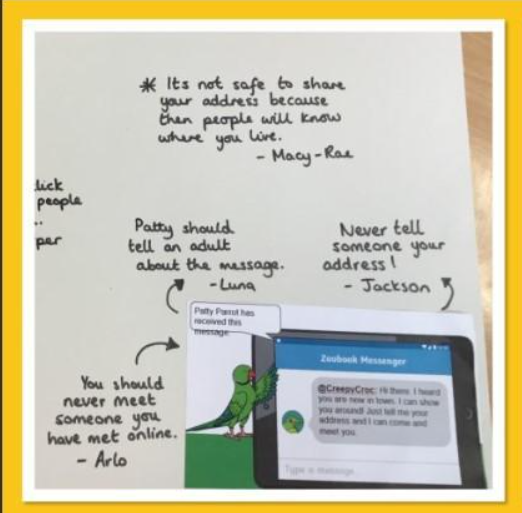 * Its not safe to share
your address because
then people will know
where you live.
- Macy-Rae
lick
people
..
per
Patty should
tell an adult
about the message.
- Luna
Never tell
someone your
address!
- Jackson
Patty Parrot has
received this
message
You should
never meet
someone you
have met online.
- Arlo
Zoobook Messenger
@CreepyCroc: Hi there. I heard
you are new in town. I can show
you around! Just tell me your
address and I can come and
meet you.
Type a message